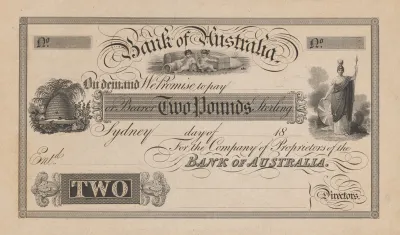 No
No
Bank of Australia.
On demand We Promise to pay
or Bearer Two Pounds Sterling
Sydney day of 18
For the Company of Proprietors of the
BANK OF AUSTRALIA.
Entd.
TWO
Directors.